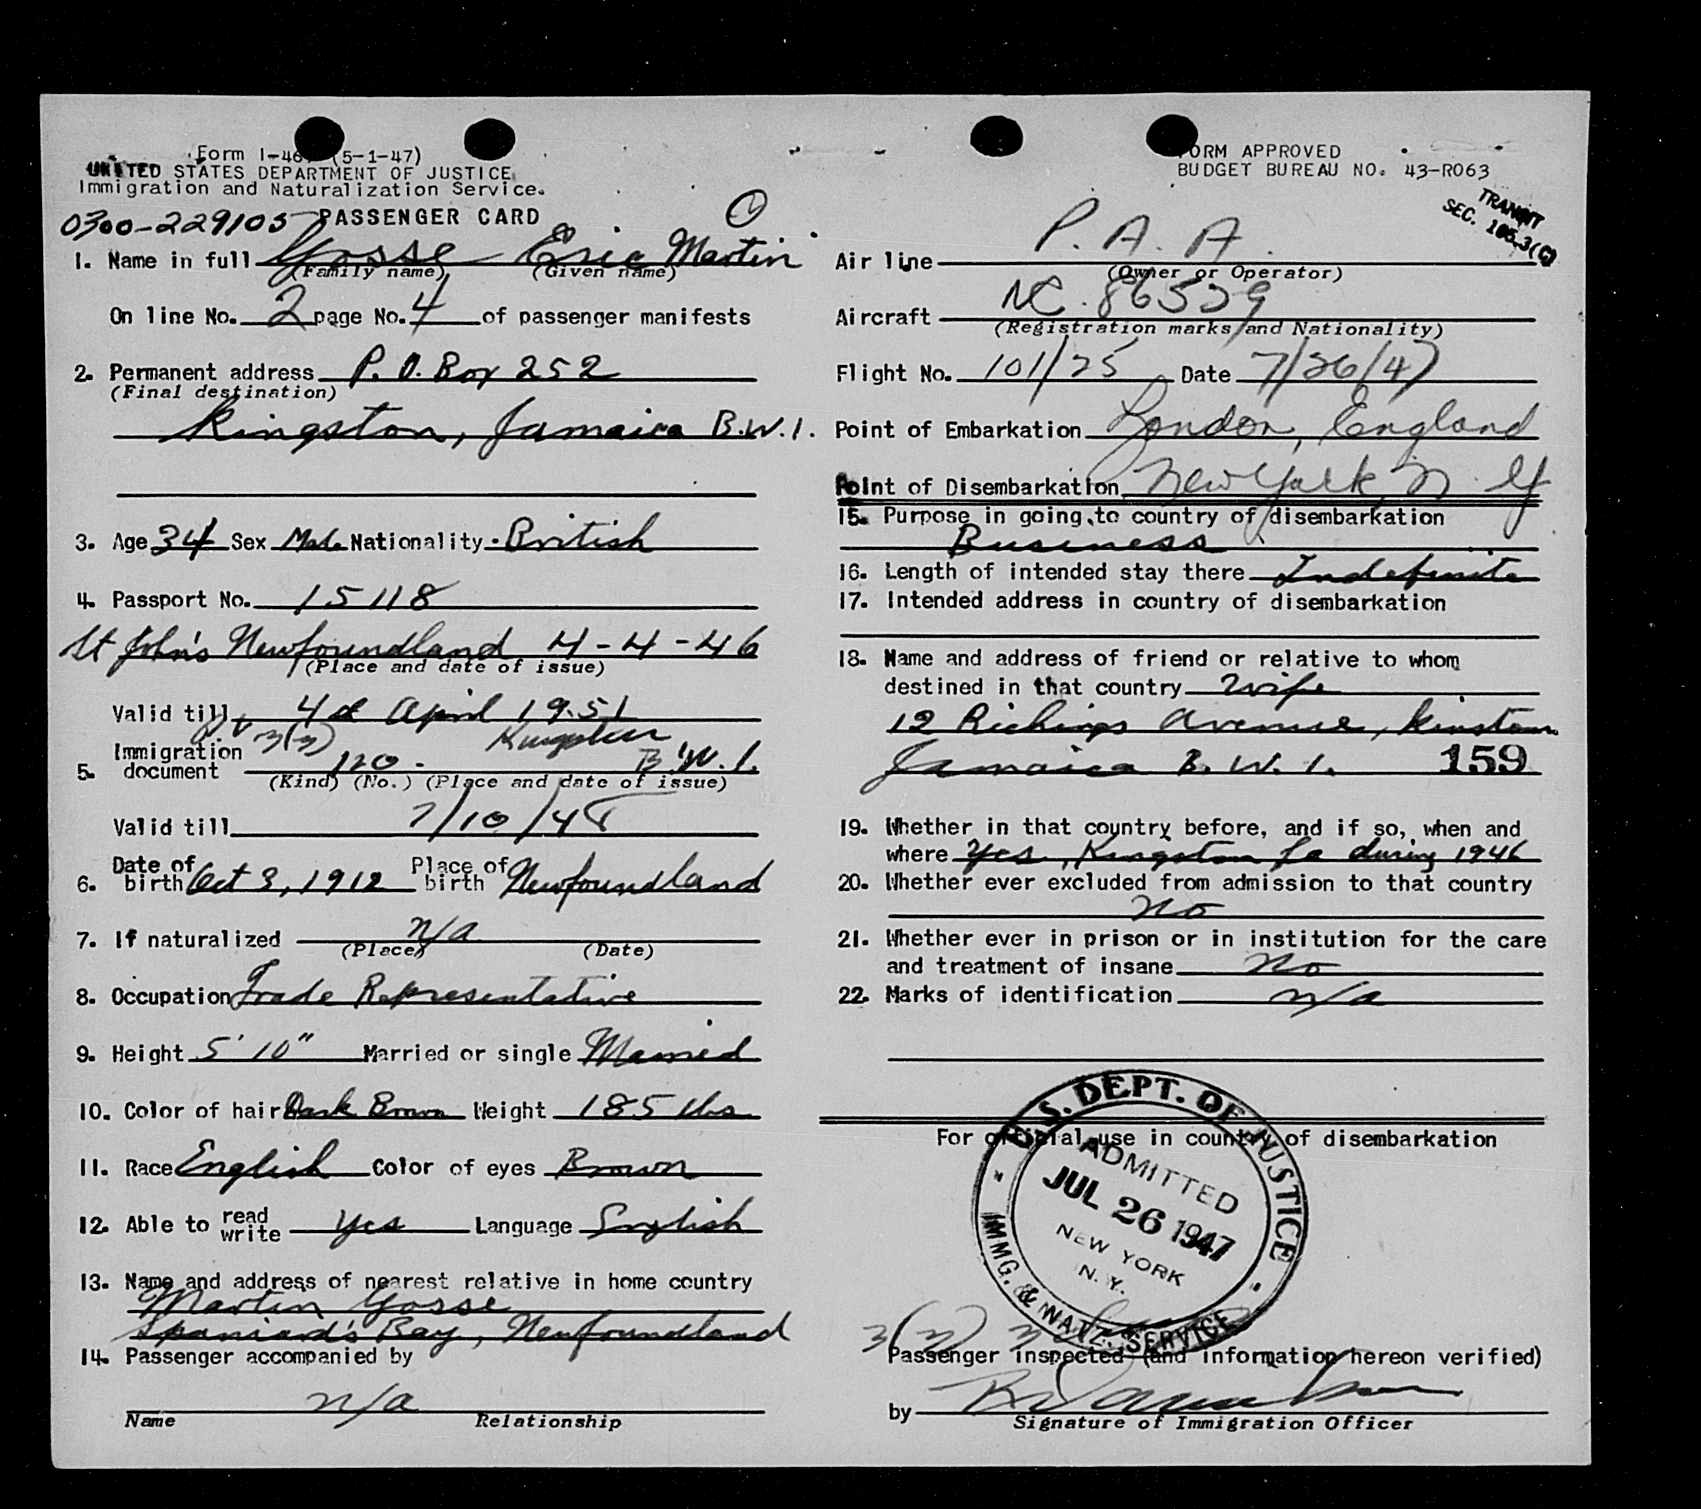 Form I-46 (5-1-47)
UNITED STATES DEPARTMENT OF JUSTICE
Immigration and Naturalization Service.
0300-229105 PASSENGER CARD
1. Name in full Gosse Eric Martin
(Family name) (Given name)
On line No. 2 page No. 4 of passenger manifests
2. Permanent address P.O. Box 252
(Final destination)
Kingston, Jamaica B.W.I.
3. Age 34 Sex Male Nationality British
4. Passport No. 15118
St John's Newfoundland 4-4-46
(Place and date of issue)
Valid till 4th April 1951
3(3) Kingston
5. Immigration document 120. B.W.I.
(Kind) (No.) (Place and date of issue)
Valid till 7/10/48
6. Date of birth Oct 3, 1912 Place of birth Newfoundland
7. If naturalized n/a
(Place) (Date)
8. Occupation Trade Representative
9. Height 5' 10" Married or single Married
10. Color of hair Dark Brown Weight 185 lbs
11. Race English Color of eyes Brown
12. Able to read write Yes Language English
13. Name and address of nearest relative in home country
Martin Gosse
Spaniard's Bay, Newfoundland
14. Passenger accompanied by
n/a
Name Relationship
FORM APPROVED
BUDGET BUREAU NO. 43-R063
TRANSIT
SEC. 105.3(C)
Air line P.A.A.
(Owner or Operator)
Aircraft NC.86529
(Registration marks and Nationality)
Flight No. 101/25 Date 7/26/47
Point of Embarkation London, England
Point of Disembarkation New York N.Y
15. Purpose in going to country of disembarkation
Business
16. Length of intended stay there Indefinite
17. Intended address in country of disembarkation
18. Name and address of friend or relative to whom
destined in that country Wife
12 Richings Avenue, Kinston
Jamaica B.W.I. 159
19. Whether in that country before, and if so, when and
where Yes, Kingston Ja during 1946
20. Whether ever excluded from admission to that country
No
21. Whether ever in prison or in institution for the care
and treatment of insane No
22. Marks of identification n/a
For official use in country of disembarkation
U.S. DEPT. OF JUSTICE
ADMITTED
JUL 26 1947
NEW YORK
N.Y.
IMMG. & NATZ. SERVICE
3(3)
Passenger inspected (and information hereon verified)
by
Signature of Immigration Officer